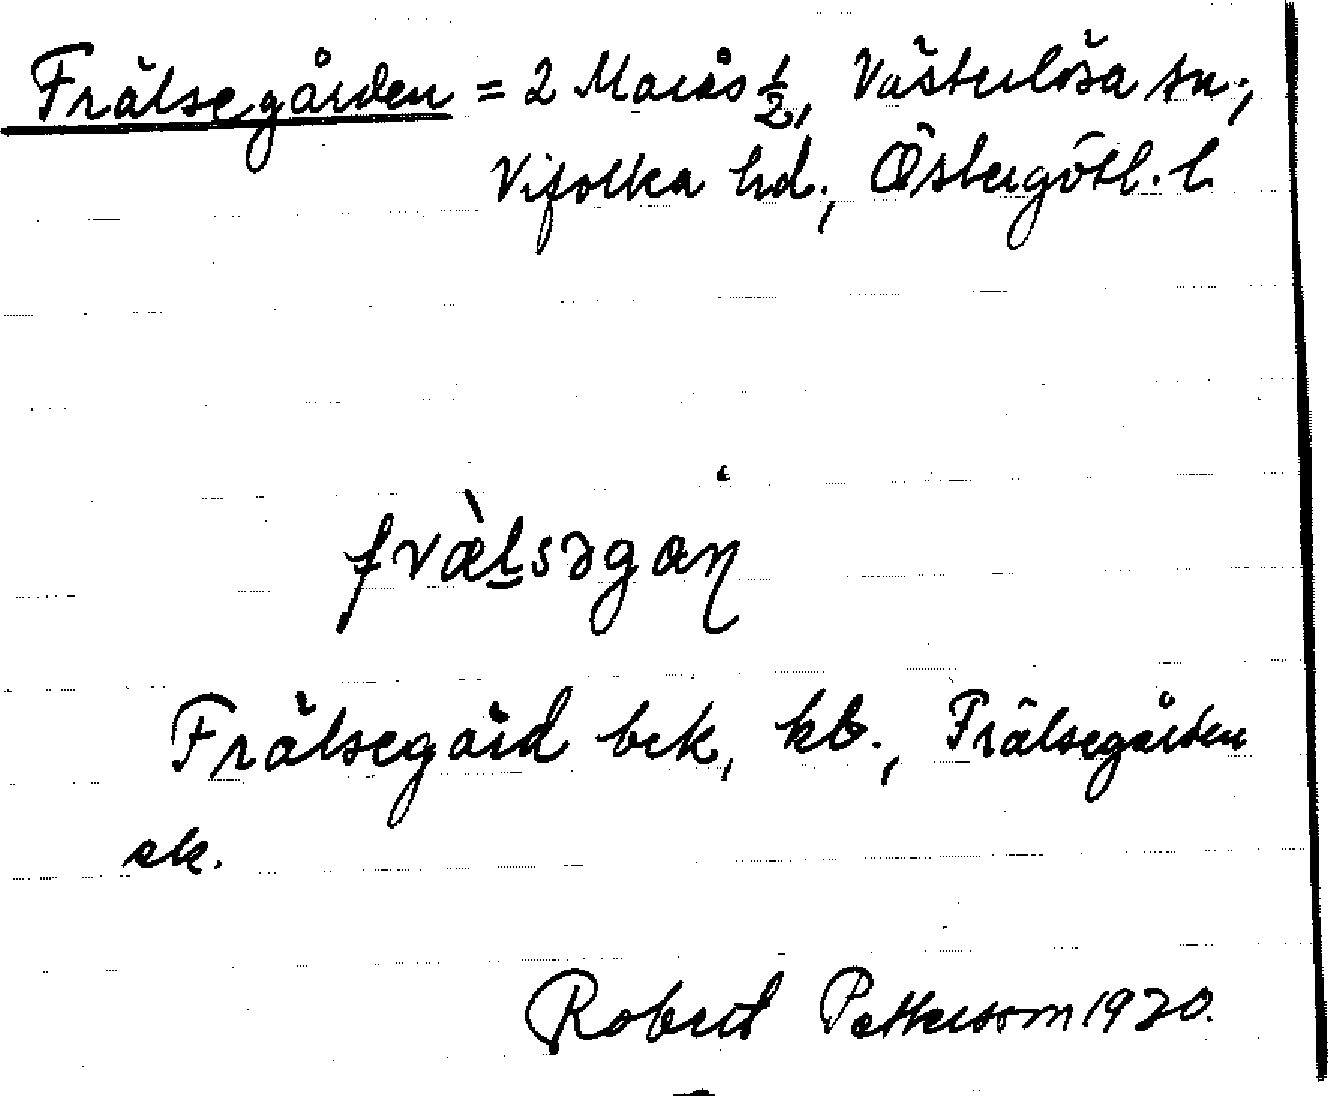 Frälsegården = 2 Marås 1/2, Västerlösa sn,
Vifolka hd., Östergötl. l.
frὰlsəgaṇ
Frälsegård bek, kb., Frälsegården
ek.
Robert Pettersson 1920.